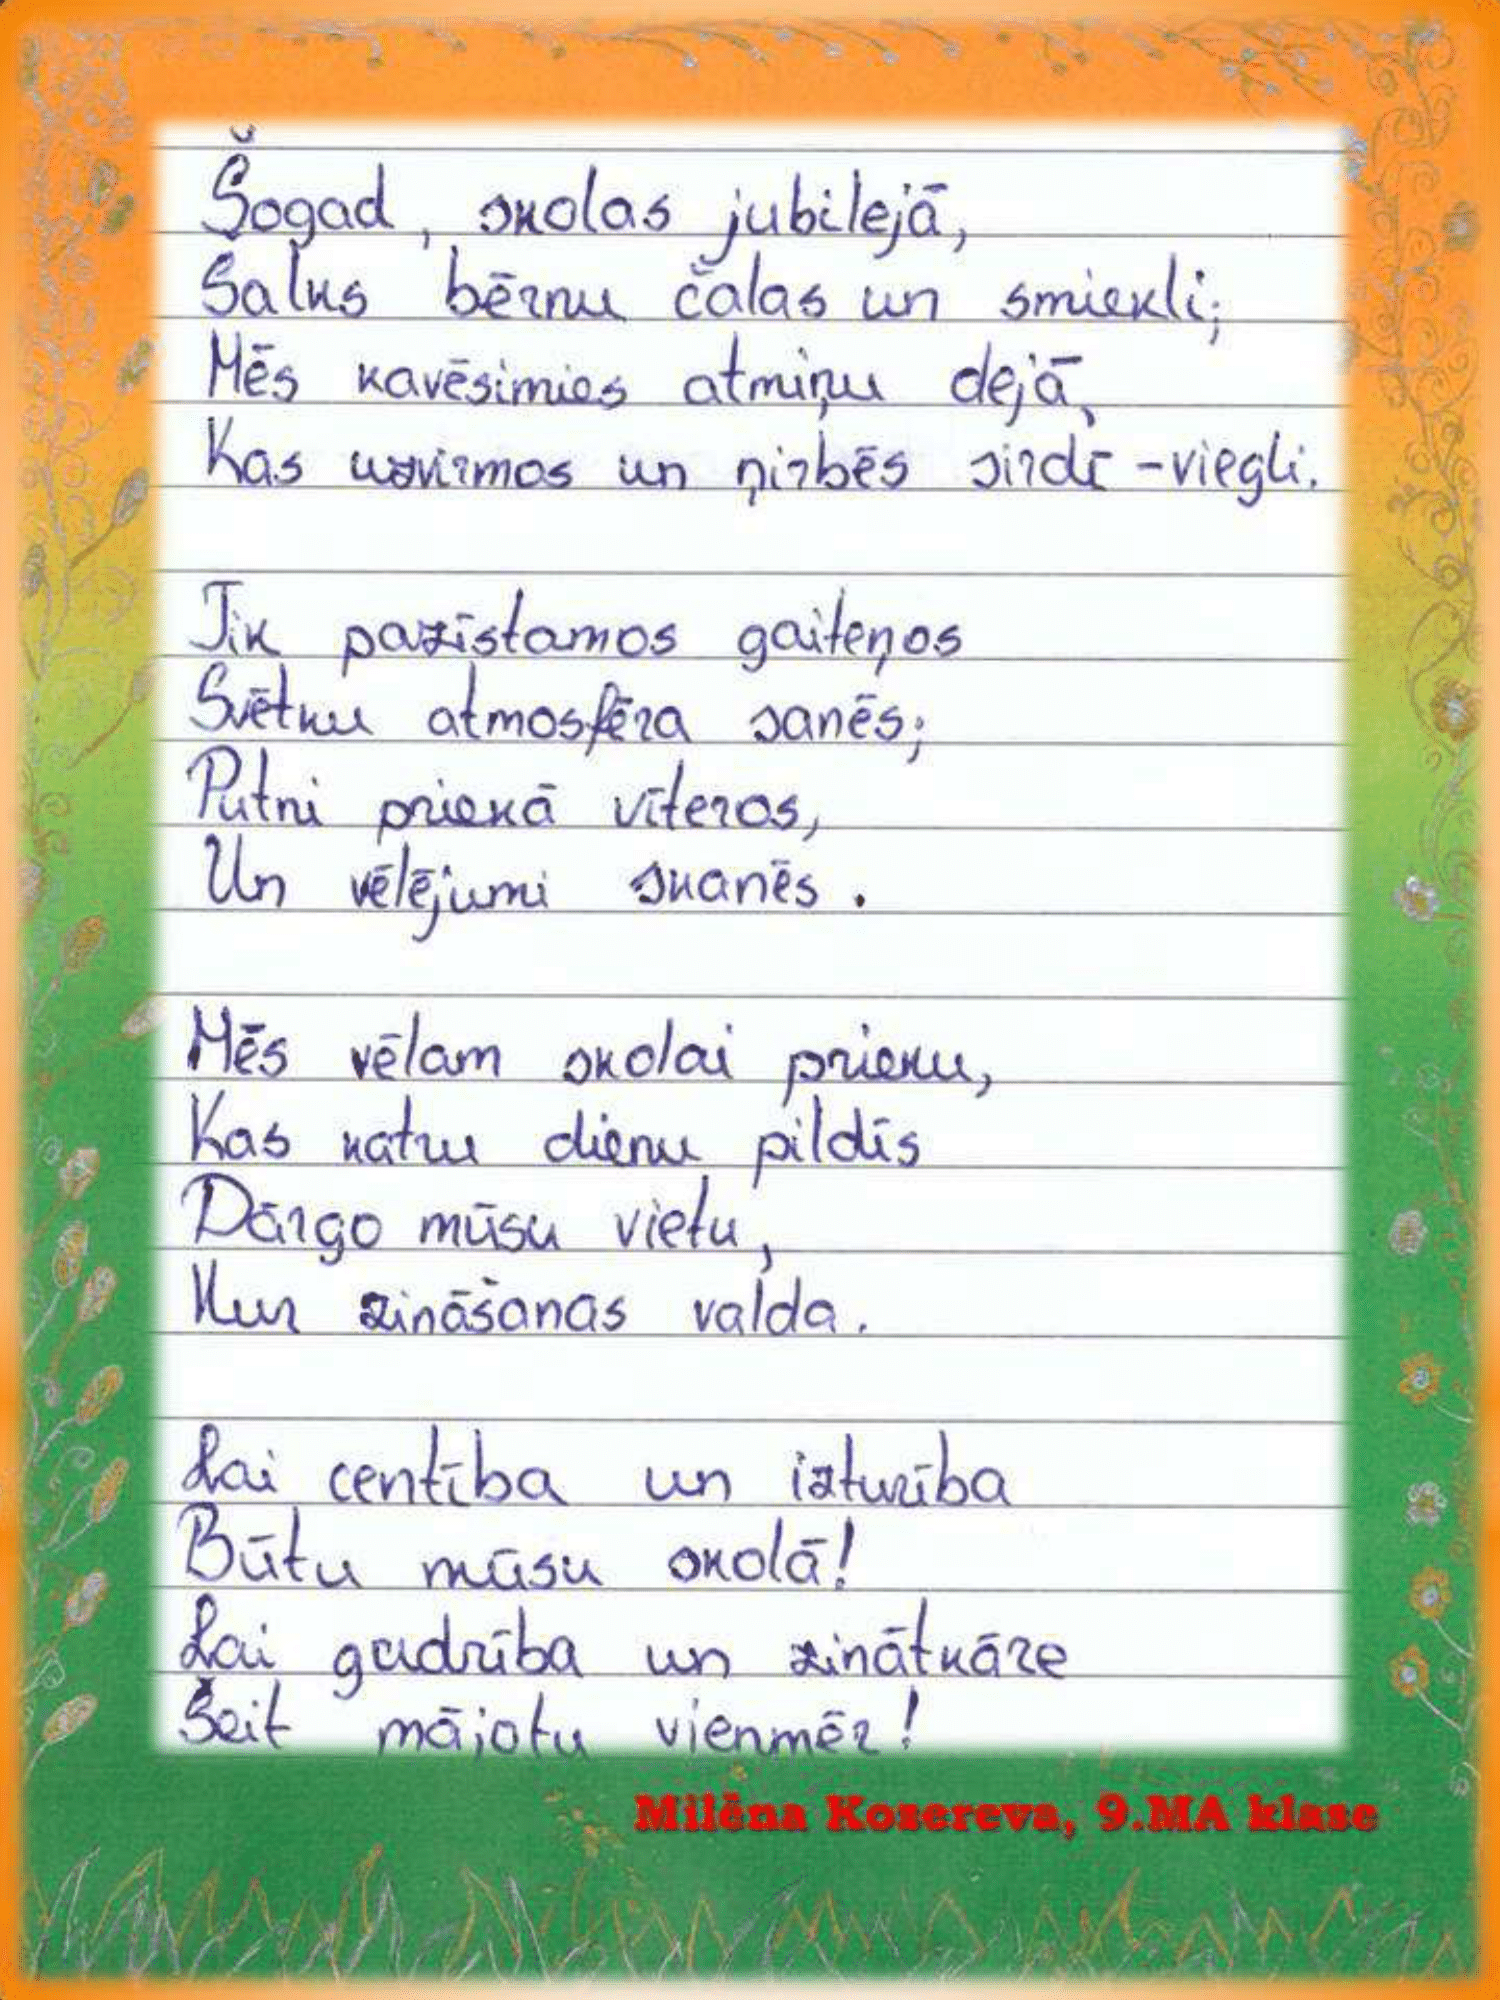 Šogad, skolas jubilejā,
Šalks bērnu čalas un smiekli;
Mēs kavēsimies atmiņu dejā,
Kas uzvirmos un ņirbēs sirdī - viegli.
Tik pazīstamos gaiteņos
Svētku atmosfēra sanēs;
Putni priekā vīteros,
Un vēlējumi skanēs.
Mēs vēlam skolai prieku,
Kas katru dienu pildīs
Dārgo mūsu vietu,
Kur zināšanas valda.
Lai centība un izturība
Būtu mūsu skolā!
Lai gudrība un zinātkāre
Šeit mājotu vienmēr!
Milēna Kozereva, 9.MA klase